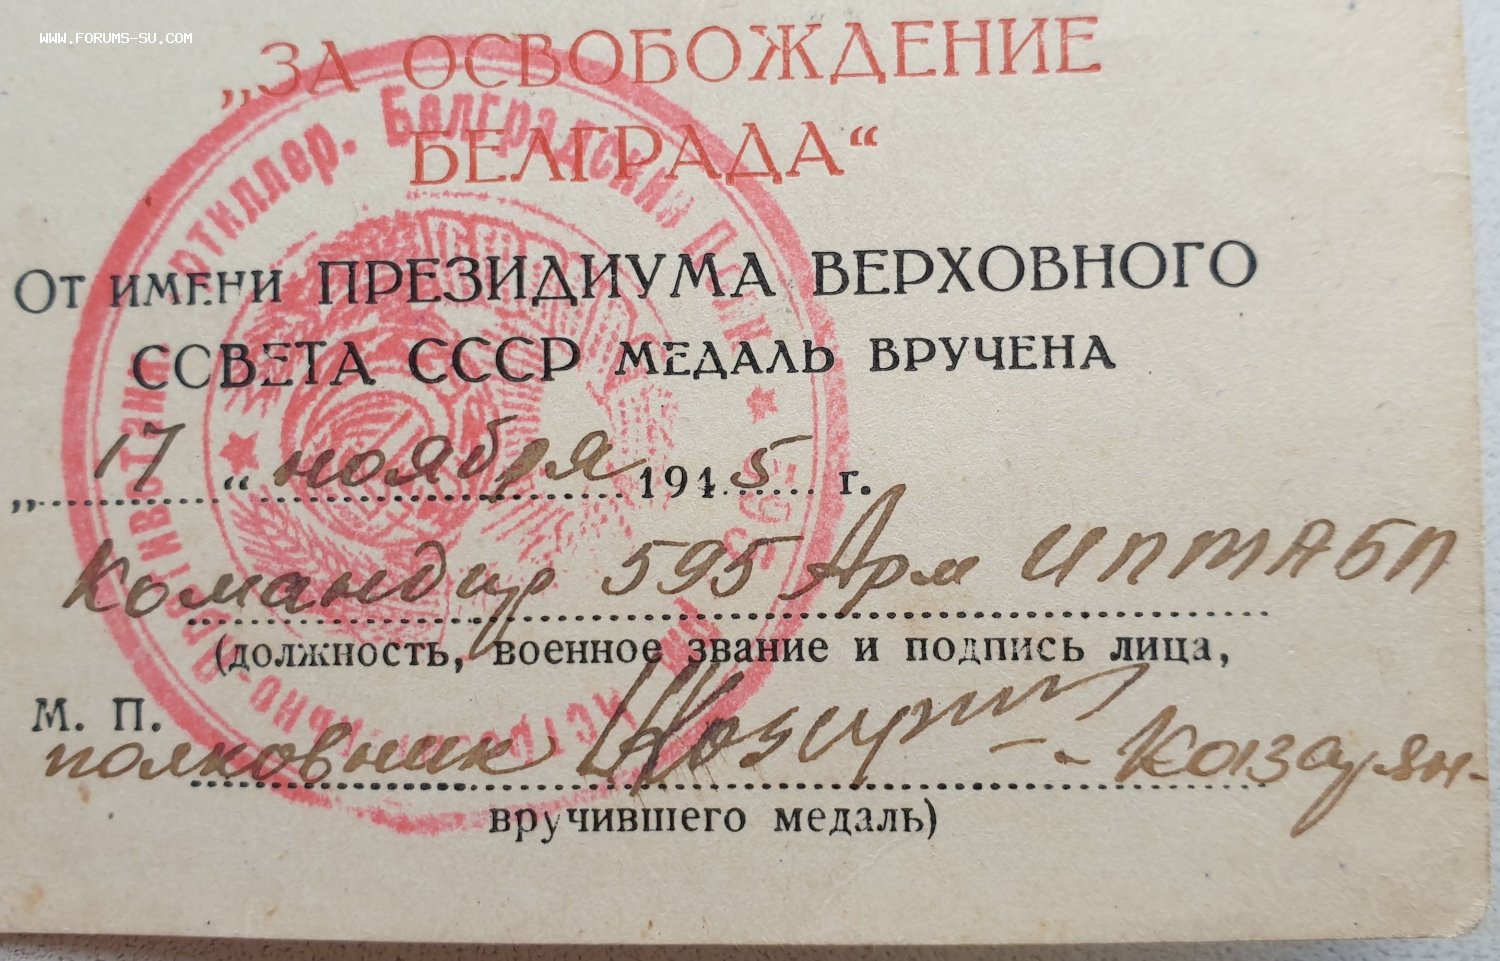 WWW.FORUMS-SU.COM
„ЗА ОСВОБОЖДЕНИЕ
БЕЛГРАДА“
От имени ПРЕЗИДИУМА ВЕРХОВНОГО
СОВЕТА СССР МЕДАЛЬ ВРУЧЕНА
„17“ ноября 1945 г.
Командир 595 Арм ИПТАБП
(должность, военное звание и подпись лица,
М. П.
полковник - Козарян-
вручившего медаль)
артиллер. Белградский Полк